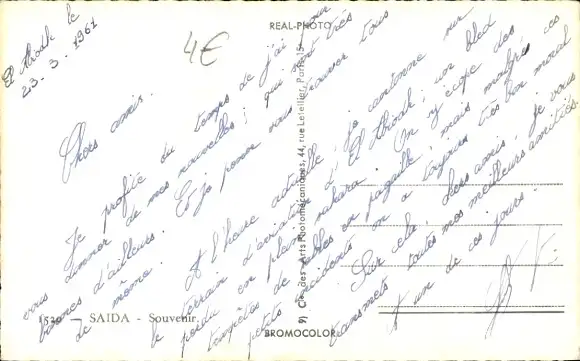 El Abiodh le
23-3-1961
4€
REAL-PHOTO
Chers amis.
Je profite du temps de j'ai pour
vous donner de mes nouvelles; qui sont très
bonnes d'ailleurs. Et je pense vous trouver tous
de même.
A l'heure actuelle, je cantonne sur
le terrain d'aviation d'El Abiodh; un bled
perdu en plein sahara. On y écope des
tempêtes de sables en pagaille; mais malgrés ces
petits incidents on a toujours très bon moral
Sur cela, chers amis, je vous
transmets toutes mes meilleurs amitiés.
A un de ces jours.
1520 — SAIDA - Souvenir
9) Cie des Arts Photomécaniques, 44, rue Letellier, Paris-15e
BROMOCOLOR